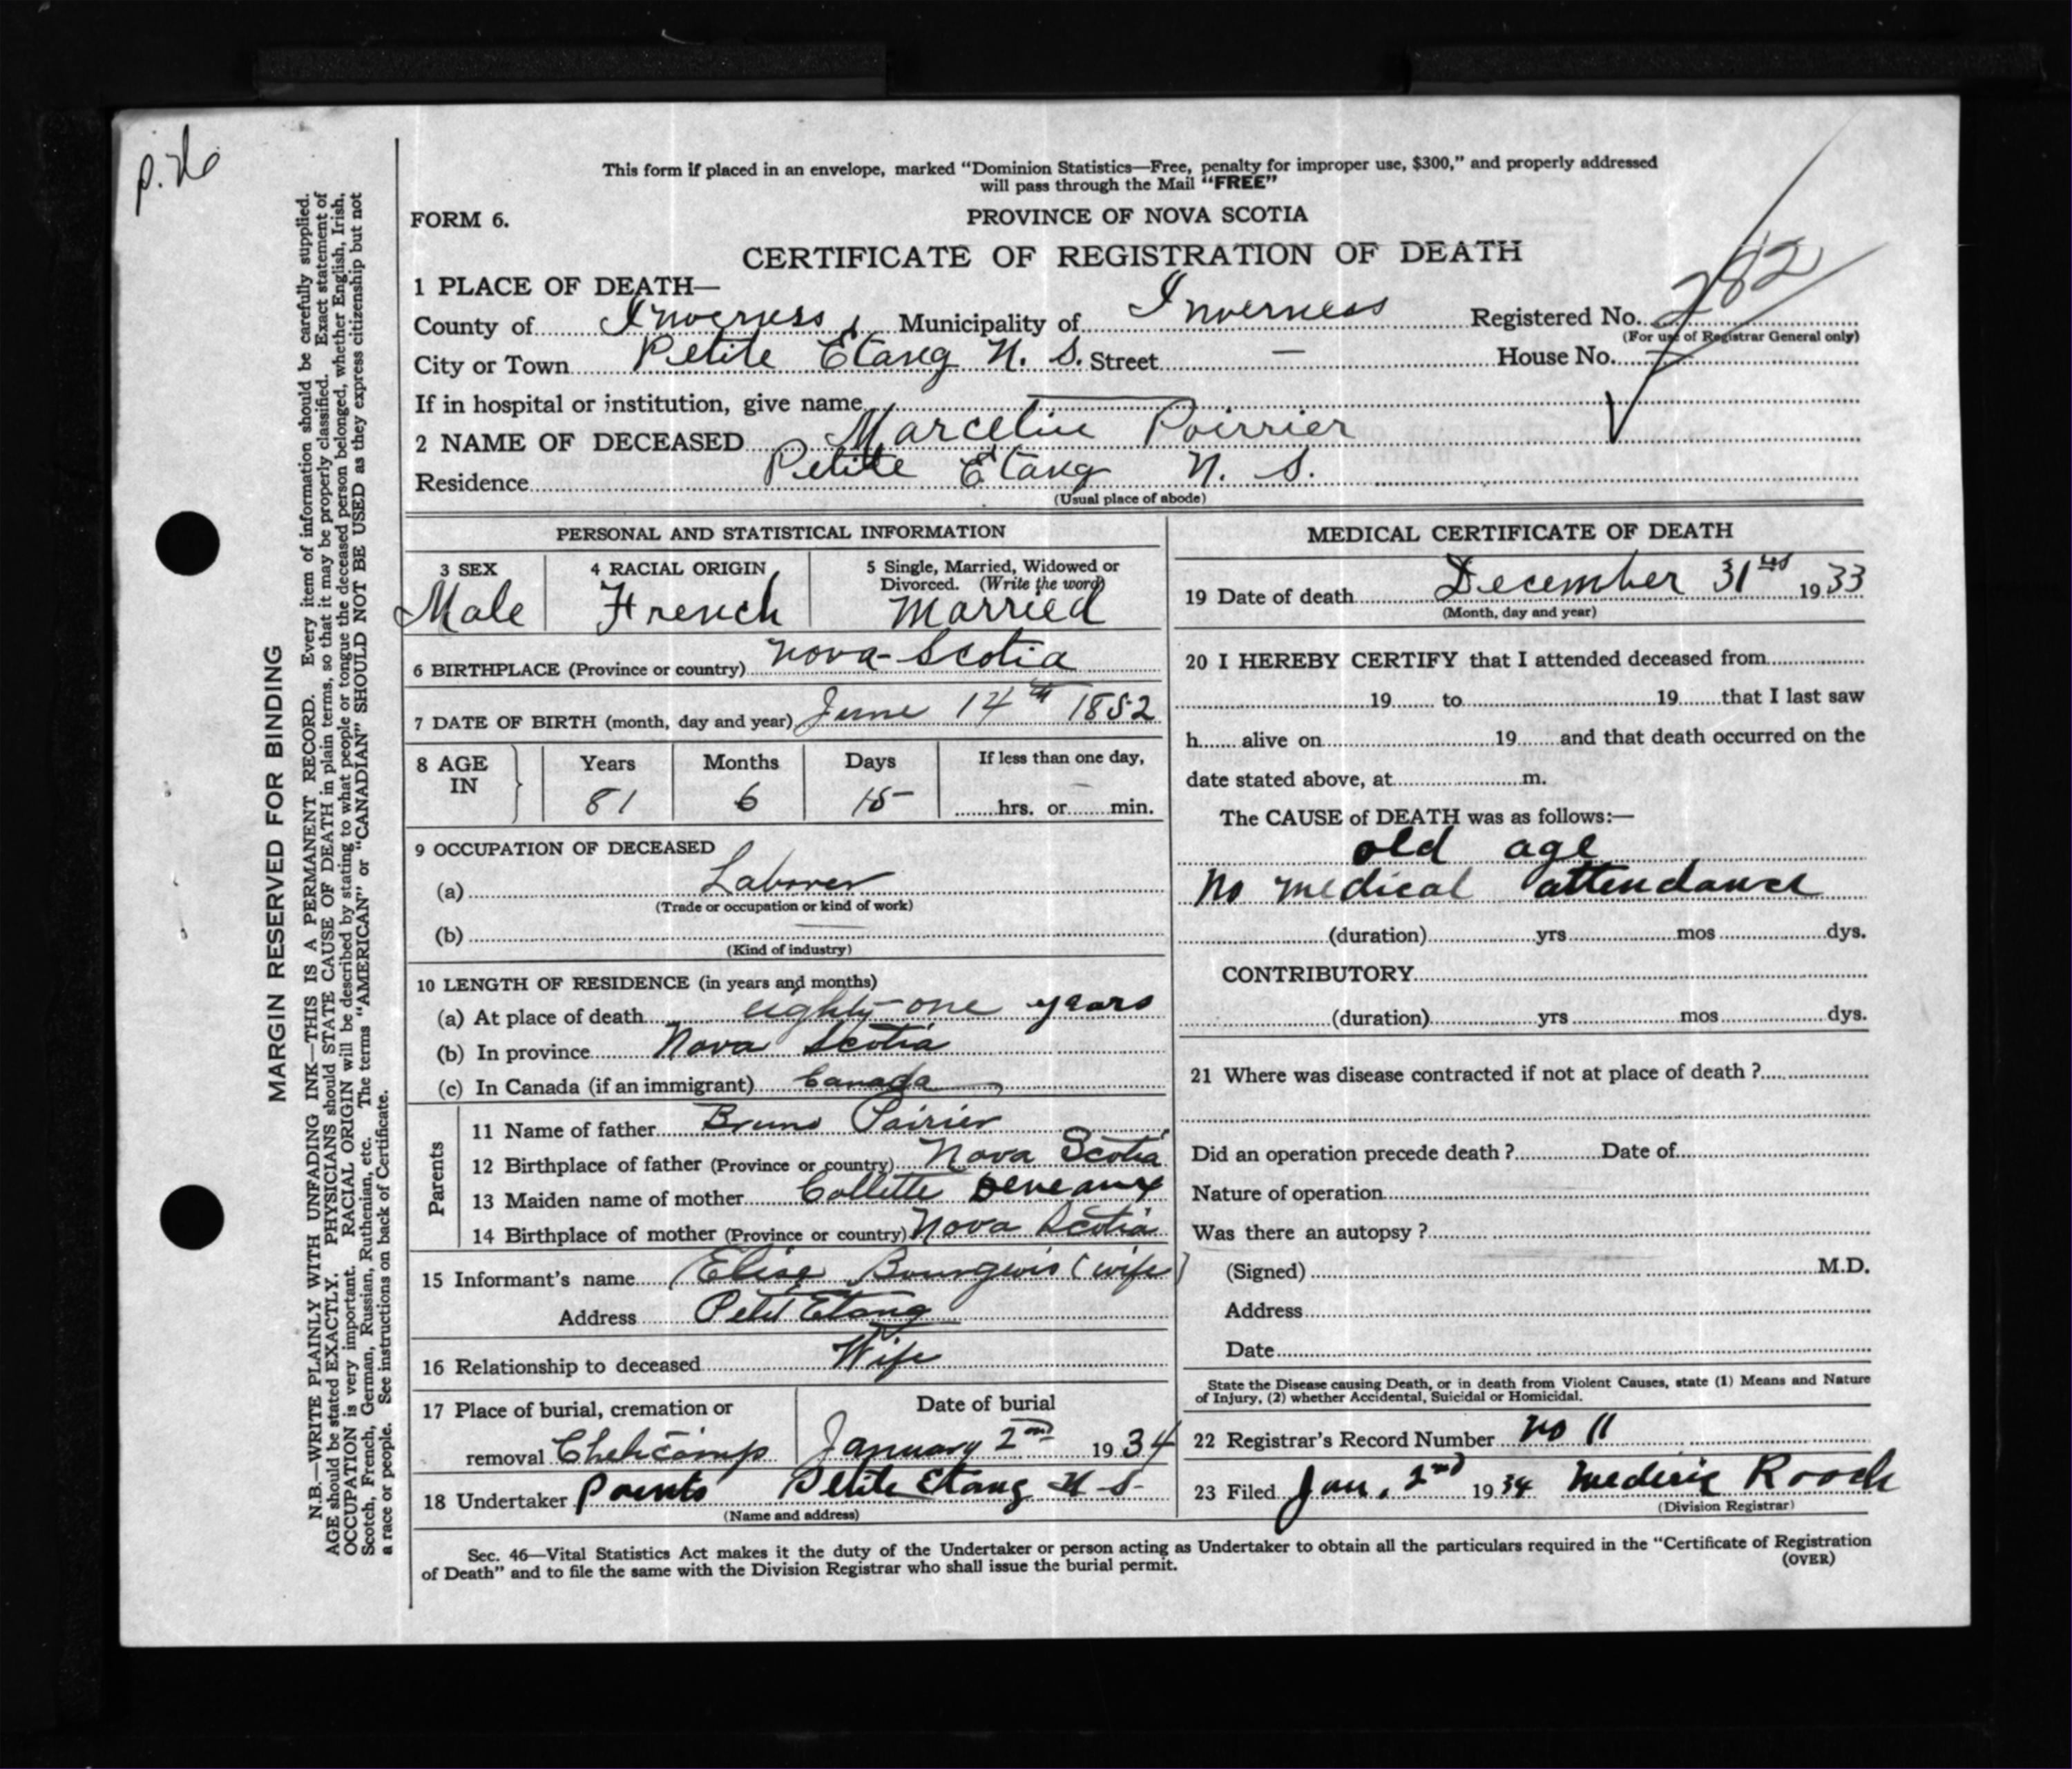 p. 26
This form if placed in an envelope, marked “Dominion Statistics—Free, penalty for improper use, $300,” and properly addressed
will pass through the Mail “FREE”
FORM 6.
PROVINCE OF NOVA SCOTIA
CERTIFICATE OF REGISTRATION OF DEATH
1 PLACE OF DEATH—
County of Inverness, Municipality of Inverness Registered No. 282
(For use of Registrar General only)
City or Town Petite Etang N. S. Street — House No.
If in hospital or institution, give name
2 NAME OF DECEASED Marcelin Poirrier
Residence Petite Etang N. S.
(Usual place of abode)
PERSONAL AND STATISTICAL INFORMATION
3 SEX Male
4 RACIAL ORIGIN French
5 Single, Married, Widowed or
Divorced. (Write the word)
Married
6 BIRTHPLACE (Province or country) Nova-Scotia
7 DATE OF BIRTH (month, day and year) June 14th 1852
8 AGE IN
Years Months Days If less than one day,
81 6 15 — hrs. or min.
9 OCCUPATION OF DECEASED
(a) Laborer
(Trade or occupation or kind of work)
(b) —
(Kind of industry)
10 LENGTH OF RESIDENCE (in years and months)
(a) At place of death eighty-one years
(b) In province Nova Scotia
(c) In Canada (if an immigrant) Canada
Parents
11 Name of father Bruno Poirier
12 Birthplace of father (Province or country) Nova Scotia
13 Maiden name of mother Collette Deveaux
14 Birthplace of mother (Province or country) Nova Scotia
15 Informant's name Elise Bourgeois (wife)
Address Petit Etang
16 Relationship to deceased Wife
17 Place of burial, cremation or
removal Cheticamp
Date of burial
January 2nd 1934
18 Undertaker Petite Etang N-S-
(Name and address)
MEDICAL CERTIFICATE OF DEATH
19 Date of death December 31 1933
(Month, day and year)
20 I HEREBY CERTIFY that I attended deceased from
19 to 19 that I last saw
h alive on 19 and that death occurred on the
date stated above, at m.
The CAUSE of DEATH was as follows:—
old age
No medical attendance
(duration) yrs mos dys.
CONTRIBUTORY
(duration) yrs mos dys.
21 Where was disease contracted if not at place of death ?
Did an operation precede death ? Date of
Nature of operation
Was there an autopsy ?
(Signed) M.D.
Address
Date
State the Disease causing Death, or in death from Violent Causes, state (1) Means and Nature
of Injury, (2) whether Accidental, Suicidal or Homicidal.
22 Registrar's Record Number No 11
23 Filed Jan. 2nd 1934 Mederic Roach
(Division Registrar)
Sec. 46—Vital Statistics Act makes it the duty of the Undertaker or person acting as Undertaker to obtain all the particulars required in the “Certificate of Registration
of Death” and to file the same with the Division Registrar who shall issue the burial permit.
(OVER)
MARGIN RESERVED FOR BINDING
N.B.—WRITE PLAINLY WITH UNFADING INK—THIS IS A PERMANENT RECORD. Every item of information should be carefully supplied.
AGE should be stated EXACTLY. PHYSICIANS should STATE CAUSE OF DEATH in plain terms, so that it may be properly classified. Exact statement of
OCCUPATION is very important. RACIAL ORIGIN will be described by stating to what people or tongue the deceased person belonged, whether English, Irish,
Scotch, French, German, Russian, Ruthenian, etc. The terms “AMERICAN” or “CANADIAN” SHOULD NOT BE USED as they express citizenship but not
a race or people. See instructions on back of Certificate.